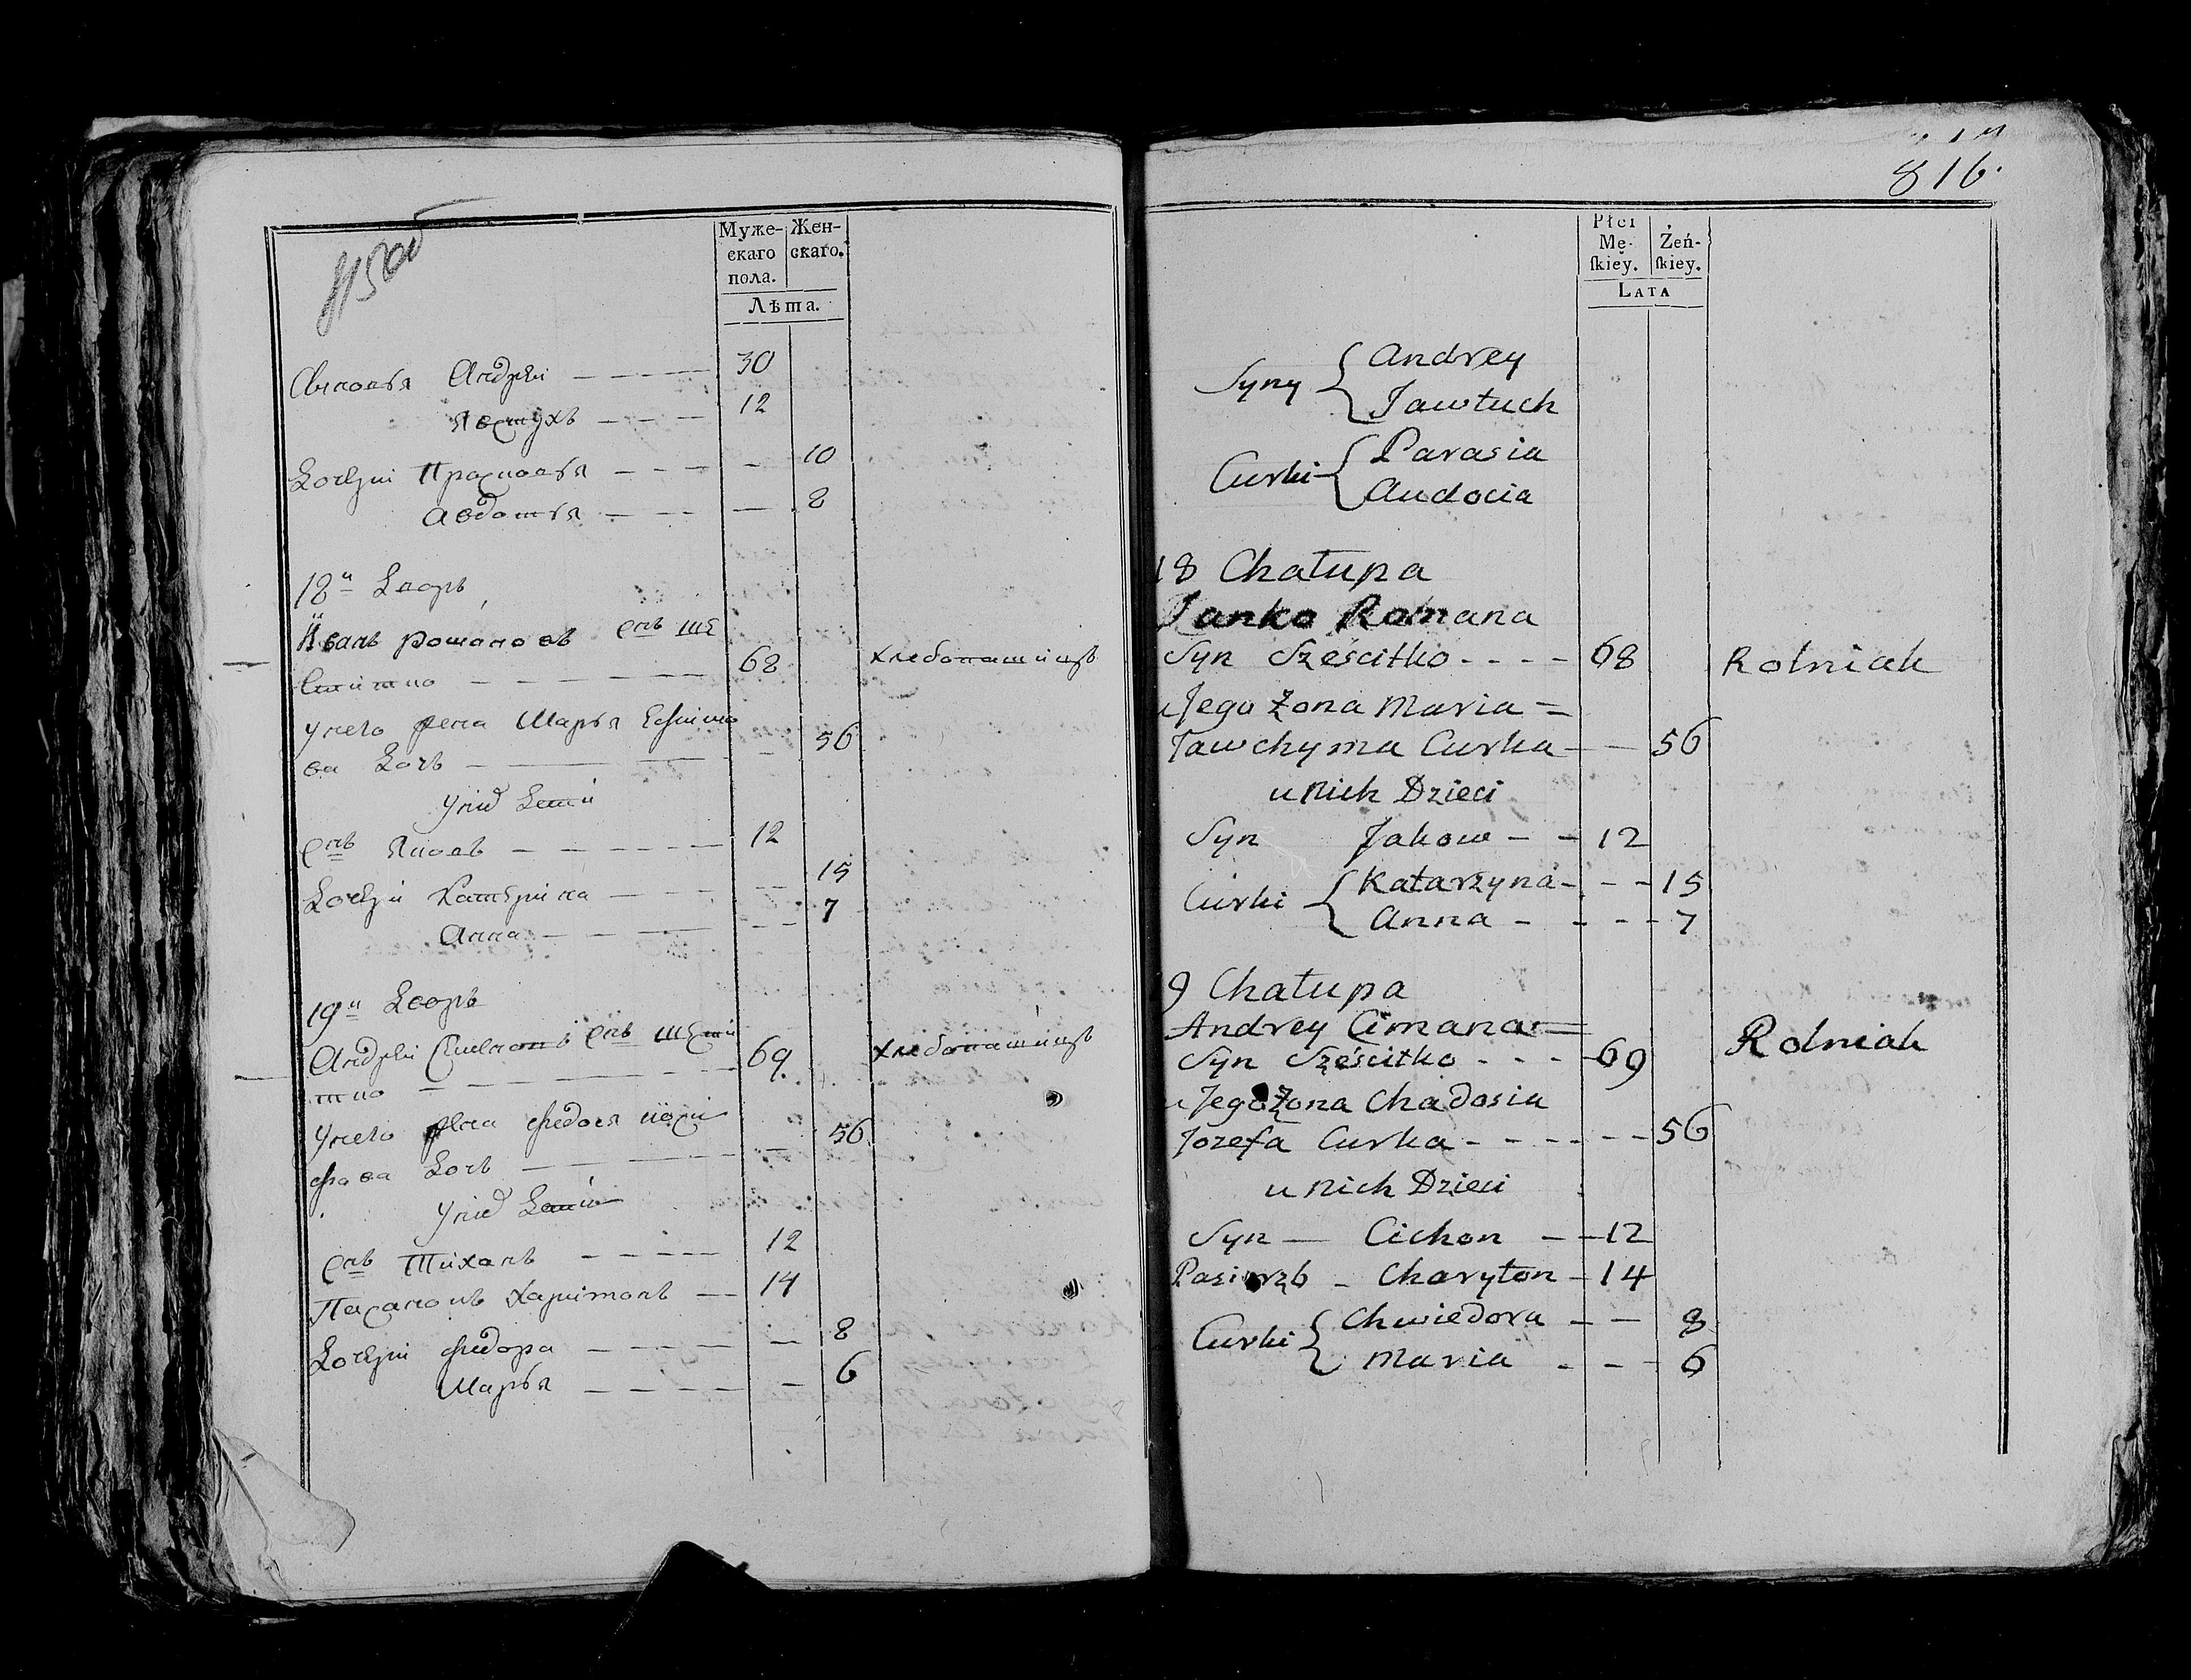 Муже- Жен-
скаго скаго.
пола.
Лѣта.
Сыновья Андрѣй — — — 30
Явтухъ — — — 12
Дочери Прасковья — — — — 10
Авдотья — — — — 8
18й Дворъ
Иванъ Романовъ снъ Ше
ститко — — — — — 68 хлебопашицъ
У него жена Марья Ефимо
ва Дочь — — — 56
У них Дети
Снъ Яковъ — — — — — 12
Дочери Катерина — — — — 15
Анна — — — — — 7
19й Дворъ
Андрѣй снъ Шести
тко — — — — — — 69. хлебопашицъ
У него жена Федося Иоси
фова Дочь — — — — 56
У них Дети
Снъ Тихонъ — — — — 12
Пасанокъ Харитонъ — — 14
Дочери Федора — — — — — 8
Марья — — — — — 6
816.
Płci
Mę- Żeń-
ſkiey. ſkiey.
LATA
Syny { Andrey
Jawtuch
Curki { Parasia
Audocia
18 Chałupa
Janko Romana
Syn Sześcitko - - - - 68 Rolniak
u Jego Żona Maria =
Jawchyma Curka — — 56
u Nich Dzieci
Syn Jakow — — 12
Curki { Katarzyna - - - 15
Anna - - - - 7
9 Chałupa
Andrey Cimana =
Syn Sześcitko - - - - 69 Rolniak
u Jego Żona Chadosia
Jozefa Curka - - - - - - 56
u Nich Dzieci
Syn — Cichon — — 12
Pasierzb - Charyton - 14
Curki { Chwiedora - — 8
Maria - - - - 6